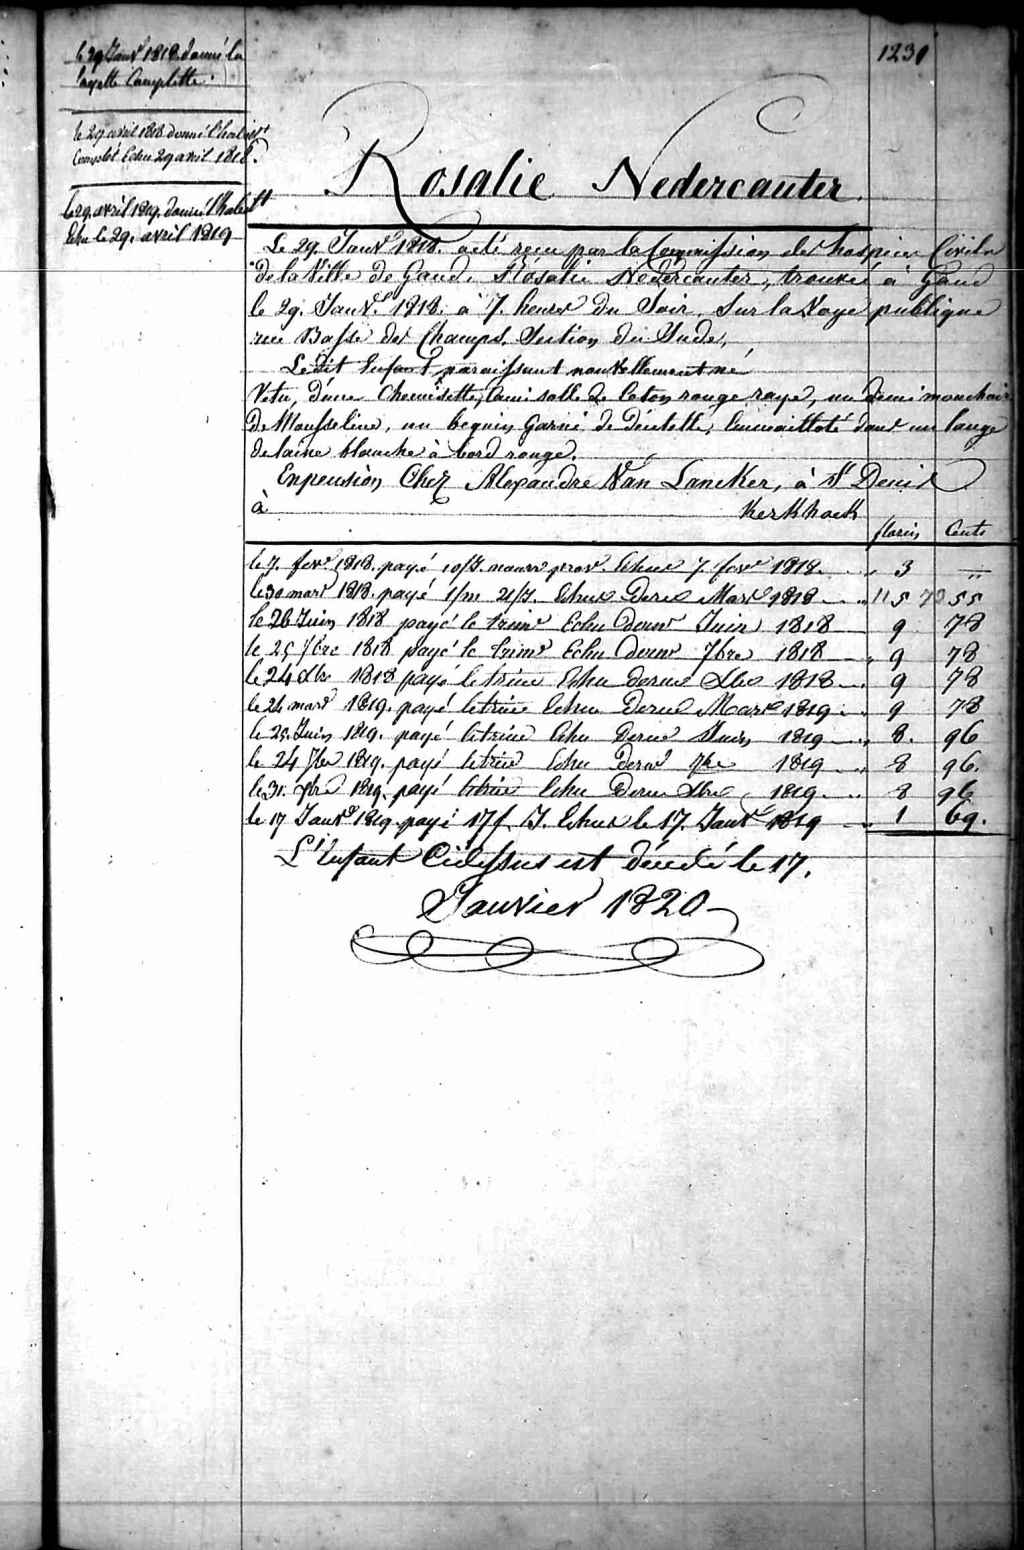 1231
le 29 Janv.r 1818. donné la
layette Complette.
le 29 avril 1818 donné l'habillt
Complet Echu 29 avril 1818.
le 29. avril 1819. donné l'habillt
Echu le 29. avril 1819
Rosalie Nedercauter.
Le 29. Janv.r 1818. a été reçu par la Commission des hospices Civils
de la Ville de Gand, Rosalie Nedercauter, trouvée à Gand
le 29. Janv.r 1818. à 7. heures du Soir, Sur la Voye publique
rue Basse des Champs, Section du Sude,
Le dit Enfant paraissant nouvellement né
Vetu, d'une Chemisette, Camisolle de Coton rouge rayé, un demi mouchoir
de Mousseline, un beguin garni de dentelle, Emmaillotté dans un lange
de laine blanche à bord rouge.
Enpension Chez Alexandre Van Lancker, à St Denis
à Kerkhoek
florins Cents
le 7. fevr 1818. payé 10/J. nourr prov. Echus 7. fevr 1818. „ 3 „
le 30 mars 1818. payé 1/m 21/J. Echus Dere Mars 1818 „ 5 55
le 26 Juin 1818 payé le trimr Echu dernr Juin 1818 „ 9 78
le 25 7bre 1818 payé le trimr Echu dernr 7bre 1818 „ 9 78
le 24 Xbre 1818 payé le trime Echu derne Xbre 1818 „ 9 78
le 24 mars 1819. payé letrime Echu Derne Mars 1819 „ 9 78
le 25. Juin 1819. payé letrime Echu Derne Juin 1819 „ 8. 96
le 24 7br 1819. payé letrime Echu Dernr 7bre 1819 „ 8 96.
le 31. Xbre 1819. payé letrime Echu Derne Xbre 1819. „ 8 96
le 17 Janvr 1819 payé 17 J. Echus le 17. Janvr 1819 „ 1 69.
L'Enfant Cidessus est décedé le 17.
Janvier 1820